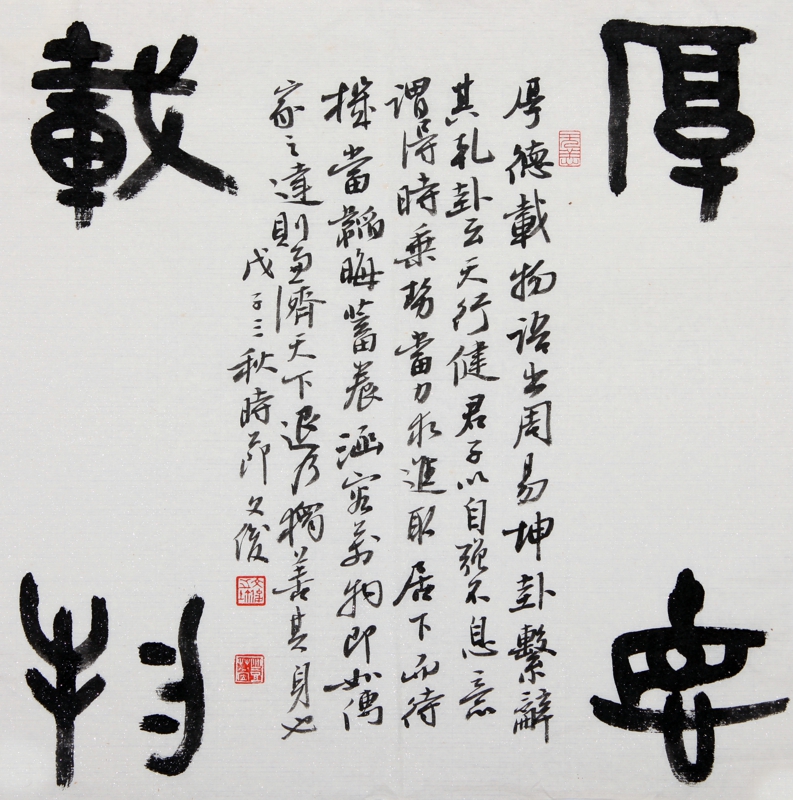 厚
德
載
物
厚德載物語出周易坤卦繫辭
其乾卦云天行健君子以自强不息意
謂得時乗勢當力求進取居下而待
機當韜晦蓄養涵容萬物即如儒
家之達則兼濟天下退乃獨善其身也
戊子三秋時節文俊